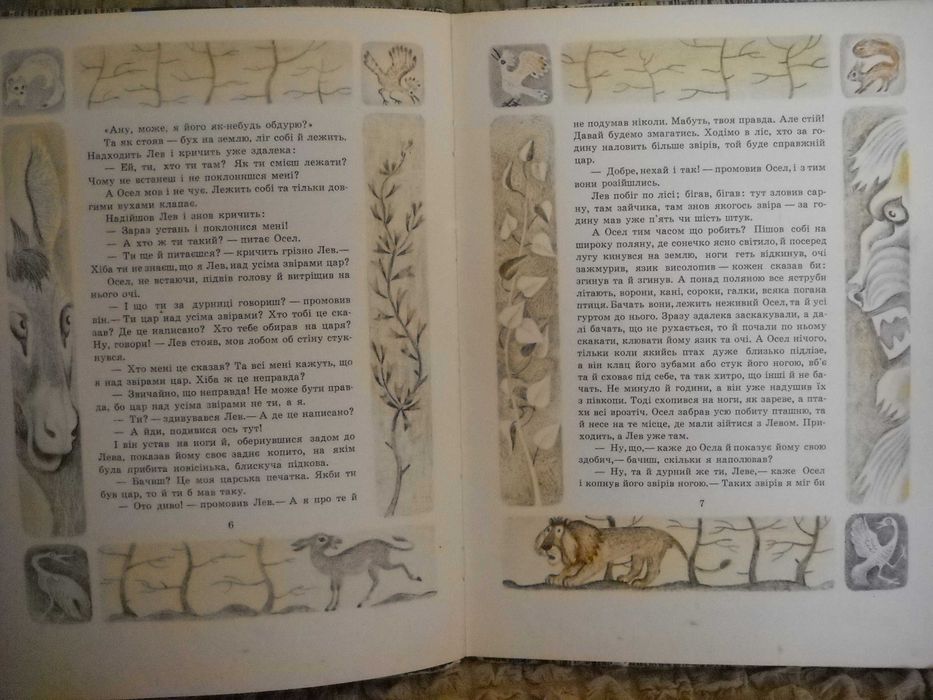 «Ану, може, я його як-небудь обдурю?»
Та як стояв — бух на землю, ліг собі й лежить.
Надходить Лев і кричить уже здалека:
— Ей, ти, хто ти там? Як ти смієш лежати?
Чому не встанеш і не поклонишся мені?
А Осел мов і не чує. Лежить собі та тільки дов-
гими вухами клапає.
Надійшов Лев і знов кричить:
— Зараз устань і поклонися мені!
— А хто ж ти такий? — питає Осел.
— Ти ще й питаєшся? — кричить грізно Лев.—
Хіба ти не знаєш, що я Лев, над усіма звірами цар?
Осел, не встаючи, підвів голову й витріщив на
нього очі.
— І що ти за дурниці говориш? — промовив
він.— Ти цар над усіма звірами? Хто тобі це ска-
зав? Де це написано? Хто тебе обирав на царя?
Ну, говори! — Лев стояв, мов лобом об стіну стук-
нувся.
— Хто мені це сказав? Та всі мені кажуть, що
я над звірами цар. Хіба ж це неправда?
— Звичайно, що неправда! Не може бути прав-
да, бо цар над усіма звірами не ти, а я.
— Ти? — здивувався Лев.— А де це написано?
— А йди, подивися ось тут!
І він устав на ноги й, обернувшися задом до
Лева, показав йому своє заднє копито, на якім
була прибита новісінька, блискуча підкова.
— Бачиш? Це моя царська печатка. Якби ти
був цар, то й ти б мав таку.
— Ото диво! — промовив Лев.— А я про те й
6
не подумав ніколи. Мабуть, твоя правда. Але стій!
Давай будемо змагатись. Ходімо в ліс, хто за го-
дину наловить більше звірів, той буде справжній
цар.
— Добре, нехай і так! — промовив Осел, і з тим
вони розійшлись.
Лев побіг по лісі; бігав, бігав: тут зловив сар-
ну, там зайчика, там знов якогось звіра — за го-
дину мав уже п'ять чи шість штук.
А Осел тим часом що робить? Пішов собі на
широку поляну, де сонечко ясно світило, й посеред
лугу кинувся на землю, ноги геть відкинув, очі
зажмурив, язик висолопив — кожен сказав би:
згинув та й згинув. А понад поляною все яструби
літають, ворони, кані, сороки, галки, всяка погана
птиця. Бачать вони, лежить неживий Осел, та й усі
гуртом до нього. Зразу здалека заскакували, а да-
лі бачать, що не рухається, то й почали по ньому
скакати, клювати йому язик та очі. А Осел нічого,
тільки коли якийсь птах дуже близько підлізе,
а він клац його зубами або стук його ногою, вб'є
та й сховає під себе, та так хитро, що інші й не ба-
чать. Не минуло й години, а він уже надушив їх
з півкопи. Тоді схопився на ноги, як зареве, а пта-
хи всі врозтіч. Осел забрав усю побиту пташню, та
й несе на те місце, де мали зійтися з Левом. При-
ходить, а Лев уже там.
— Ну, що,— каже до Осла й показує йому свою
здобич,— бачиш, скільки я наполював?
— Ну, та й дурний же ти, Леве,— каже Осел
і копнув його звірів ногою.— Таких звірів я міг би
7